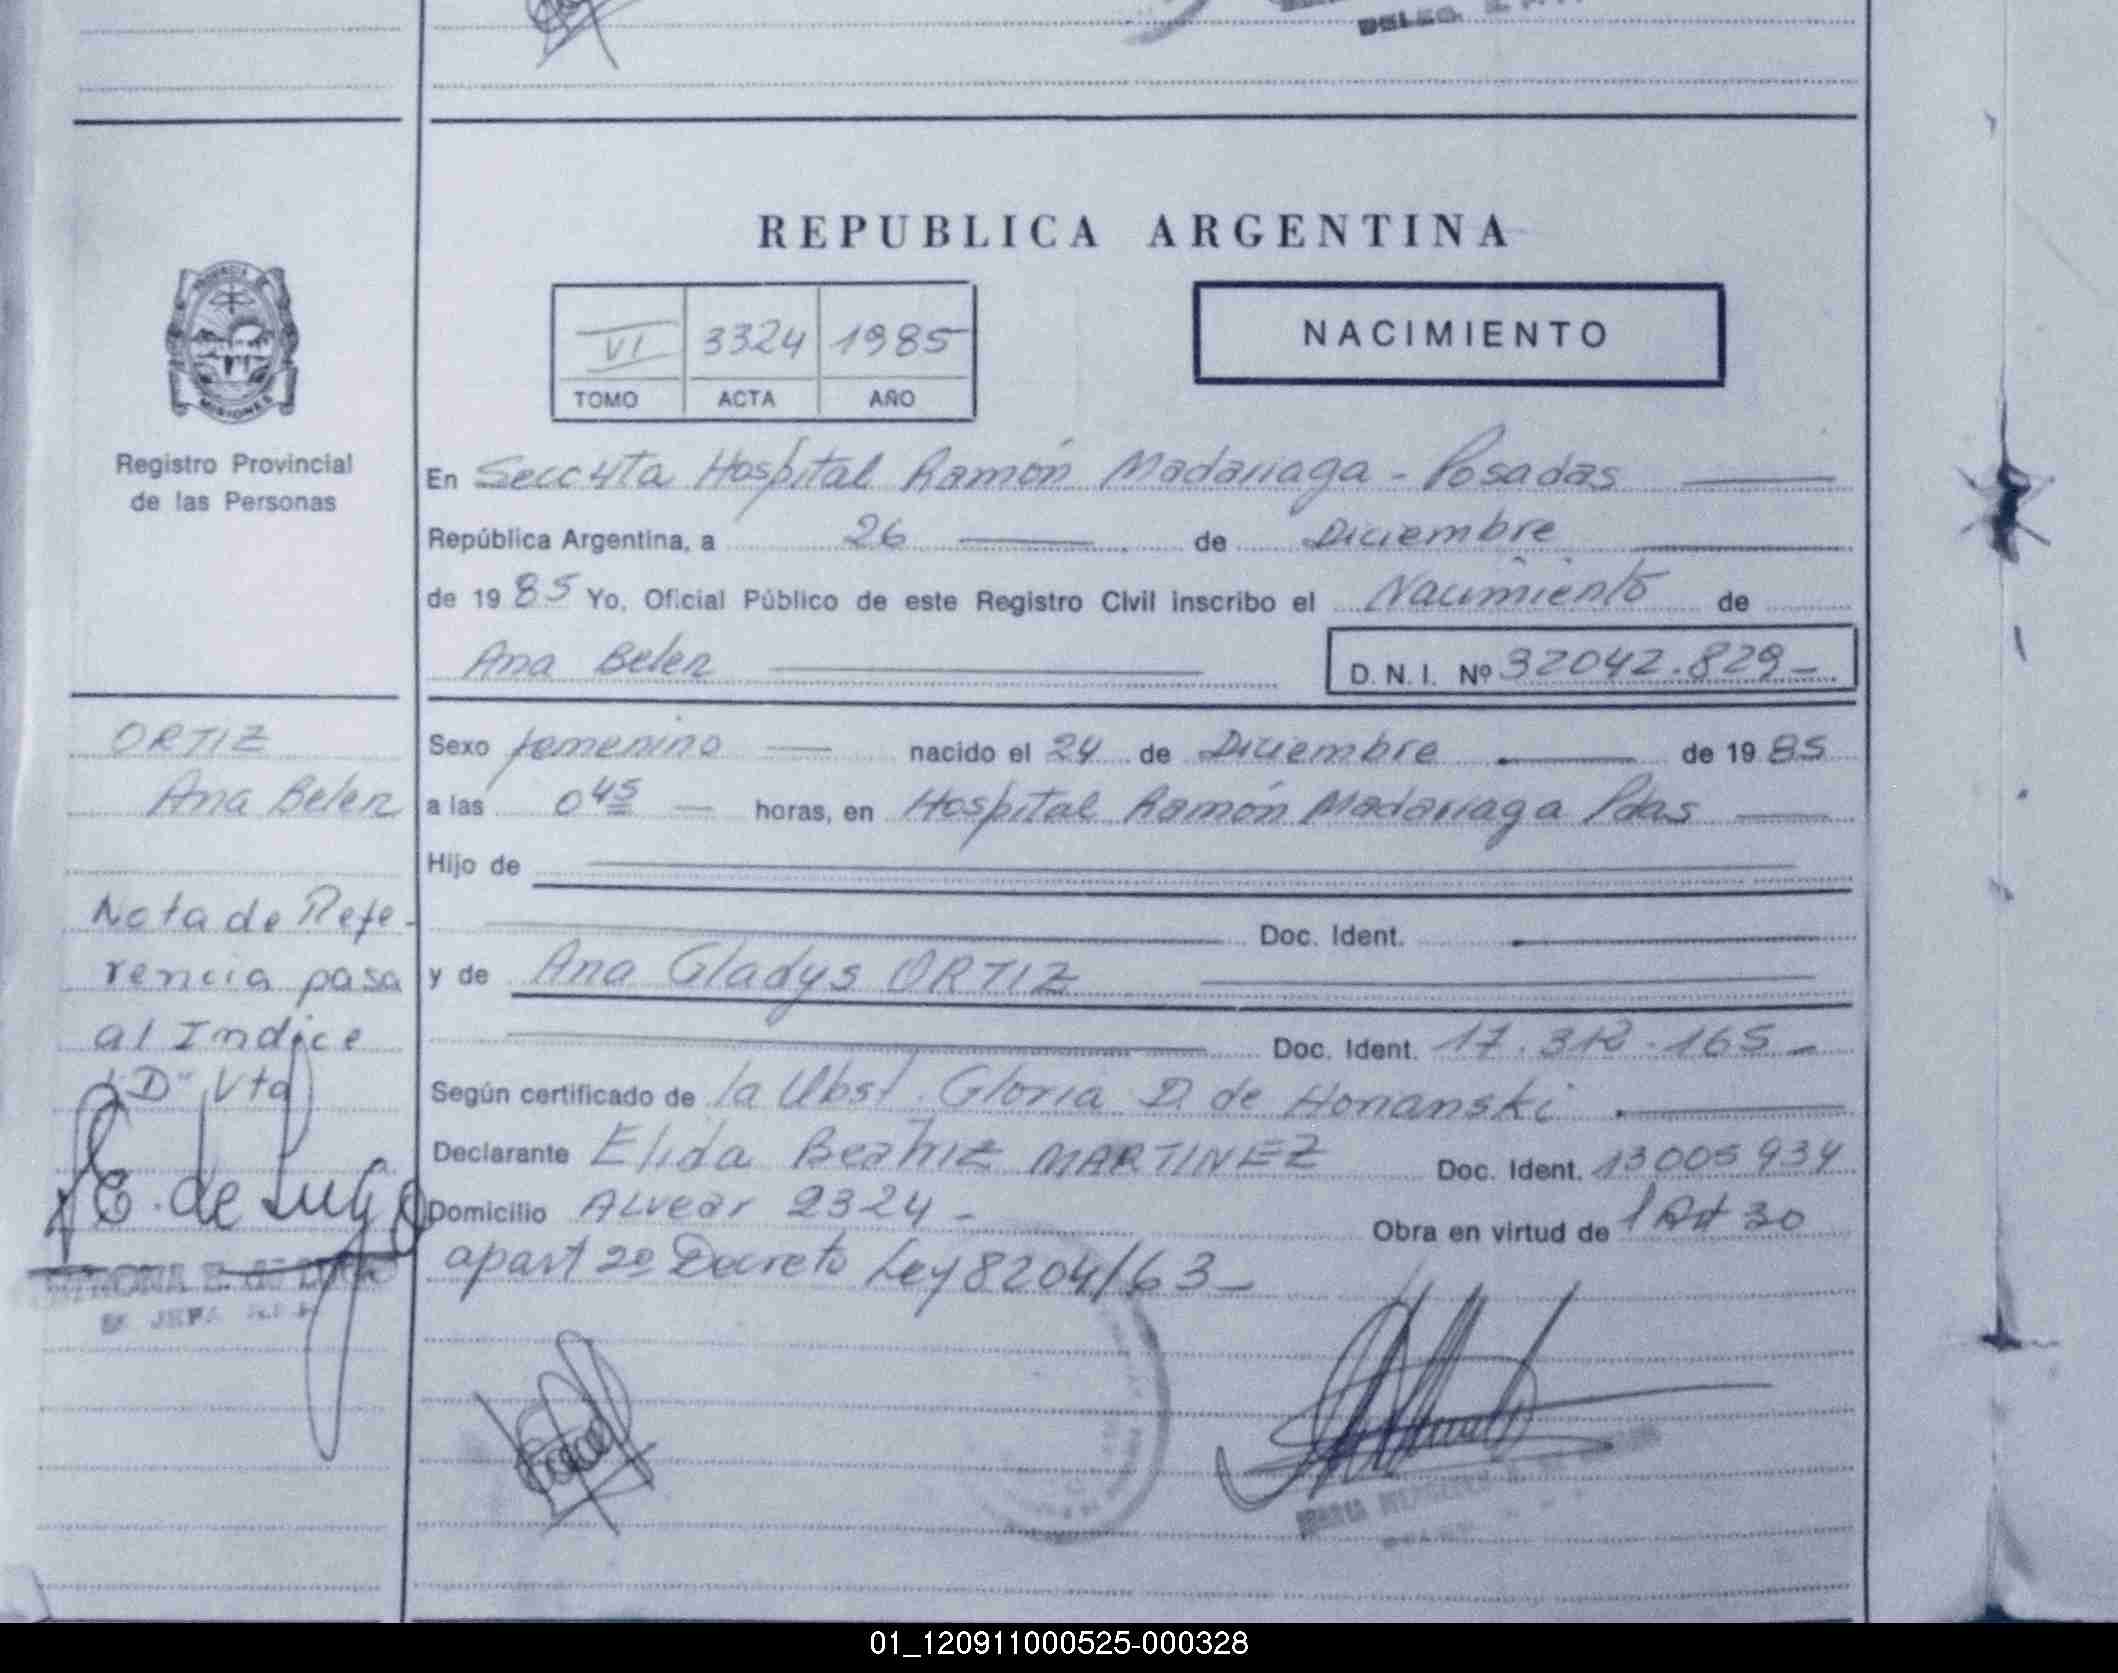 DELEG.
REPUBLICA ARGENTINA
VI 3324 1985
TOMO ACTA AÑO
NACIMIENTO
PROVINCIA
MISIONES
Registro Provincial
de las Personas
En Secc 4ta Hospital Ramón Madariaga - Posadas
República Argentina, a 26 de Diciembre
de 1985 Yo, Oficial Público de este Registro Civil inscribo el Nacimiento de
Ana Belen D. N. I. Nº 32042.829-
ORTIZ
Ana Belen
Nota de Refe-
rencia pasa
al Indice
"D" Vta
E. de Lugo
E. de LUGO
JEFA
Sexo femenino nacido el 24 de Diciembre de 1985
a las 0 45 horas, en Hospital Ramón Madariaga Pdas
Hijo de
Doc. Ident.
y de Ana Gladys ORTIZ
Doc. Ident. 17.312.165-
Según certificado de la Obst. Gloria D. de Honanski
Declarante Elida Beatriz MARTINEZ Doc. Ident. 13005934
Domicilio Alvear 2324- Obra en virtud de l Art 30
apart 2º Decreto Ley 8204/63-
MARIA
01_120911000525-000328